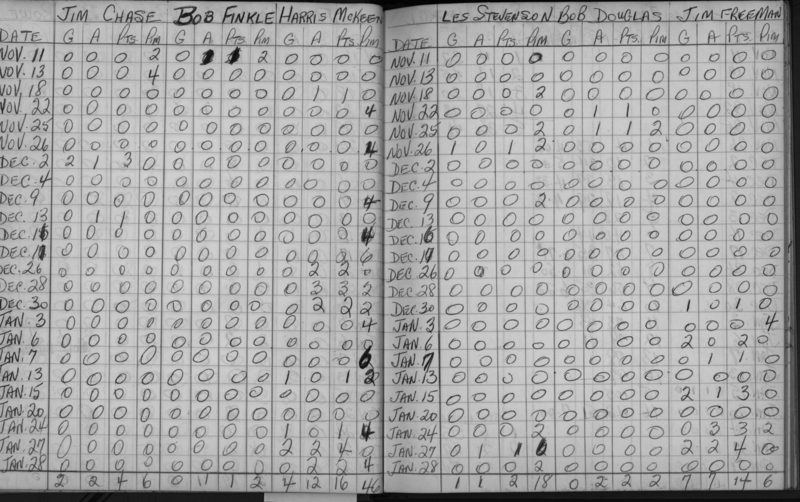 JIM CHASE BOB FINKLE HARRIS MCKEEN
DATE G A Pts Pim G A Pts Pim G A Pts Pim
NOV. 11 0 0 0 2 0 1 1 2 0 0 0 0
NOV. 13 0 0 0 4 0 0 0 0 0 0 0 0
NOV. 18 0 0 0 0 0 0 0 0 0 1 1 0
NOV. 22 0 0 0 0 0 0 0 0 0 0 0 4
NOV. 25 0 0 0 0 0 0 0 0 0 0 0 0
NOV. 26 0 0 0 0 0 0 0 0 0 0 0 4
DEC. 2 2 1 3 0 0 0 0 0 0 0 0 0
DEC. 4 0 0 0 0 0 0 0 0 0 0 0 0
DEC. 9 0 0 0 0 0 0 0 0 0 0 0 4
DEC. 13 0 1 1 0 0 0 0 0 0 0 0 0
DEC. 16 0 0 0 0 0 0 0 0 0 0 0 4
DEC. 17 0 0 0 0 0 0 0 0 0 0 0 6
DEC. 26 0 0 0 0 0 0 0 0 0 2 2 0
DEC. 28 0 0 0 0 0 0 0 0 0 3 3 2
DEC. 30 0 0 0 0 0 0 0 0 0 2 2 2
JAN. 3 0 0 0 0 0 0 0 0 0 0 0 4
JAN. 6 0 0 0 0 0 0 0 0 0 0 0 0
JAN. 7 0 0 0 0 0 0 0 0 0 0 0 6
JAN. 13 0 0 0 0 0 0 0 0 1 0 1 2
JAN. 15 0 0 0 0 0 0 0 0 0 0 0 0
JAN. 20 0 0 0 0 0 0 0 0 0 0 0 0
JAN. 24 0 0 0 0 0 0 0 0 1 0 1 4
JAN. 27 0 0 0 0 0 0 0 0 2 2 4 0
JAN. 28 0 0 0 0 0 0 0 0 0 2 2 4
2 2 4 6 0 1 1 2 4 12 16 46
LES STEVENSON BOB DOUGLAS JIM FREEMAN
DATE G A Pts. Pim G A Pts. Pim G A Pts. Pim
NOV. 11 0 0 0 0 0 0 0 0 0 0 0 0
NOV. 13 0 0 0 0 0 0 0 0 0 0 0 0
NOV. 18 0 0 0 2 0 0 0 0 0 0 0 0
NOV. 22 0 0 0 0 0 1 1 0 0 0 0 0
NOV. 25 0 0 0 2 0 1 1 2 0 0 0 0
NOV. 26 1 0 1 2 0 0 0 0 0 0 0 0
DEC. 2 0 0 0 0 0 0 0 0 0 0 0 0
DEC. 4 0 0 0 0 0 0 0 0 0 0 0 0
DEC. 9 0 0 0 2 0 0 0 0 0 0 0 0
DEC. 13 0 0 0 0 0 0 0 0 0 0 0 0
DEC. 16 0 0 0 0 0 0 0 0 0 0 0 0
DEC. 17 0 0 0 0 0 0 0 0 0 0 0 0
DEC. 26 0 0 0 0 0 0 0 0 0 0 0 0
DEC. 28 0 0 0 0 0 0 0 0 0 0 0 0
DEC. 30 0 0 0 0 0 0 0 0 1 0 1 0
JAN. 3 0 0 0 0 0 0 0 0 0 0 0 4
JAN. 6 0 0 0 0 0 0 0 0 2 0 2 0
JAN. 7 0 0 0 0 0 0 0 0 0 1 1 0
JAN. 13 0 0 0 0 0 0 0 0 0 0 0 0
JAN. 15 0 0 0 0 0 0 0 0 2 1 3 0
JAN. 20 0 0 0 0 0 0 0 0 0 0 0 0
JAN. 24 0 0 0 2 0 0 0 0 0 3 3 2
JAN. 27 0 1 1 6 0 0 0 0 2 2 4 0
JAN. 28 0 0 0 2 0 0 0 0 0 0 0 0
1 1 2 18 0 2 2 2 7 7 14 6